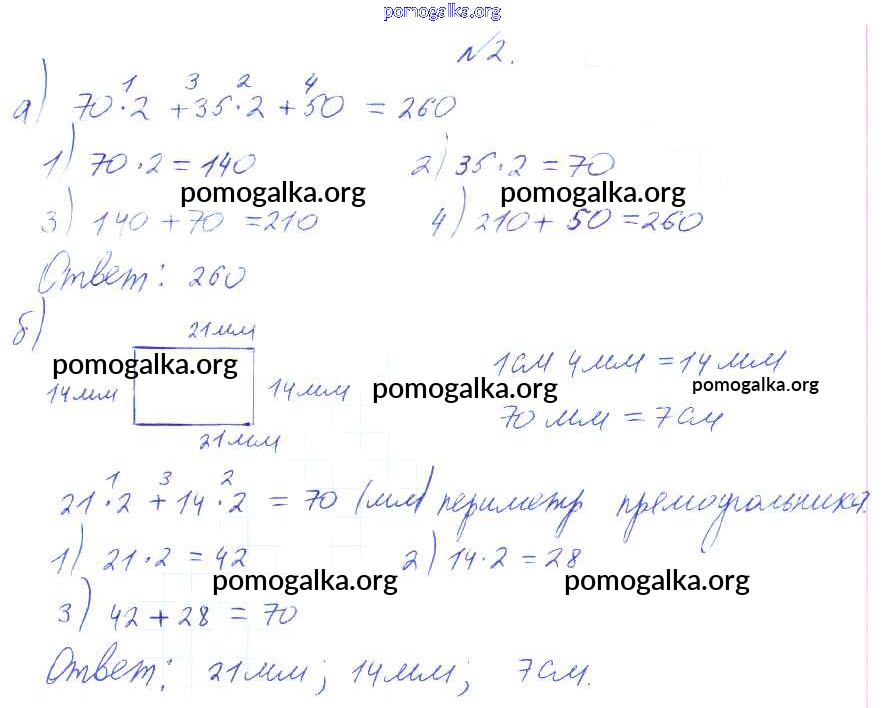 pomogalka.org
№2.
1 3 2 4
а) 70·2 +35·2 +50 = 260
1) 70·2 = 140 2) 35·2 = 70
pomogalka.org pomogalka.org
3) 140 + 70 = 210 4) 210 + 50 = 260
Ответ: 260
б)
21 мм
pomogalka.org 1 см 4 мм = 14 мм
14 мм 14 мм pomogalka.org pomogalka.org
70 мм = 7 см
21 мм
1 3 2
21·2 + 14·2 = 70 (мм) периметр прямоугольника.
1) 21·2 = 42 2) 14·2 = 28
pomogalka.org pomogalka.org
3) 42 + 28 = 70
Ответ: 21 мм; 14 мм; 7 см.